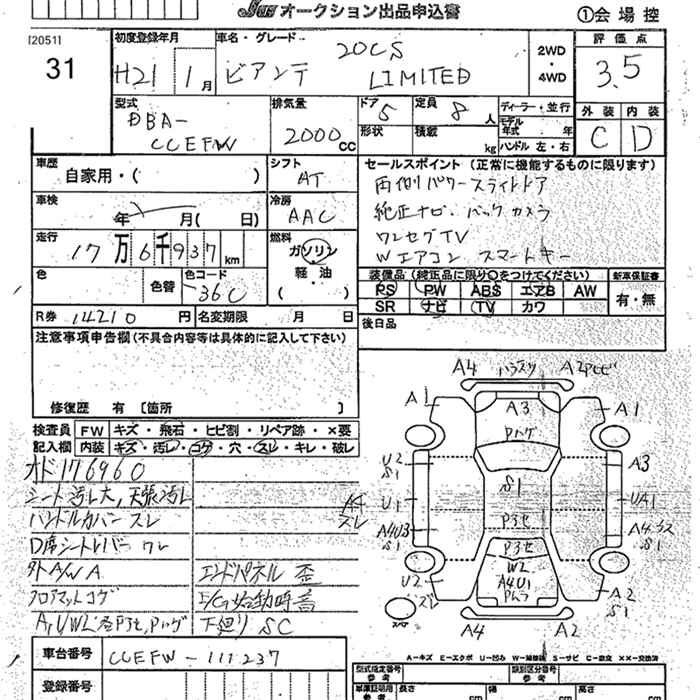 JUS オークション出品申込書
①会場控
[20511
31
初度登録年月
H21 1月
車名・グレード
ビアンテ 20CS LIMITED
2WD
・
4WD
評価点
3.5
外装 内装
C D
型式
DBA-
CCEFW
排気量
2000 CC
ドア 5
定員 8 人
形状
積載 kg
ディーラー・並行
モデル年式 年
ハンドル 左・右
車歴
自家用・( )
シフト
AT
車検
年 月( 日)
冷房
AAC
走行
17万6千937km
燃料
ガソリン
軽・油
( )
色
色替
色コード
36C
R券 14210 円
名変期限 月 日
セールスポイント (正常に機能するものに限ります)
両側パワースライドドア
純正ナビ.バックカメラ
ワンセグTV
Wエアコン スマートキー
装備品(純正品に限り○をつけてください)
新車保証書
PS PW ABS エアB AW
SR ナビ TV カワ
有・無
後日品
注意事項申告欄(不具合内容等は具体的に記入して下さい)
修復歴 有 [箇所 ]
検査員記入欄
FW キズ・飛石・ヒビ割・リペア跡・×要
内装 キズ・汚レ・コゲ・穴・スレ・キレ・破レ
オド176960
シート汚レ大,天張汚レ
ハンドルカバースレ
D席シートレバーワレ
外A/WA
フロアマットコゲ
A,U,WL
エンドパネル歪
E/G始動時音
下廻りSC
AT
スレ
A4
A2
A1
A3
Pハゲ
A1
U2
S1
S1
A3
U1
UA1
A4U3
S1
P3セ
P3セ
A4
S1
W2
A4U1
U2
A2
S1
A4
A2
A-キズ E-エクボ U-凹ミ W-補修跡 S-サビ C-腐食 ××-交換済
車台番号 CCEFW-111237
登録番号
型式指定番号
類別区分番号
長さ cm
幅 cm
高さ cm